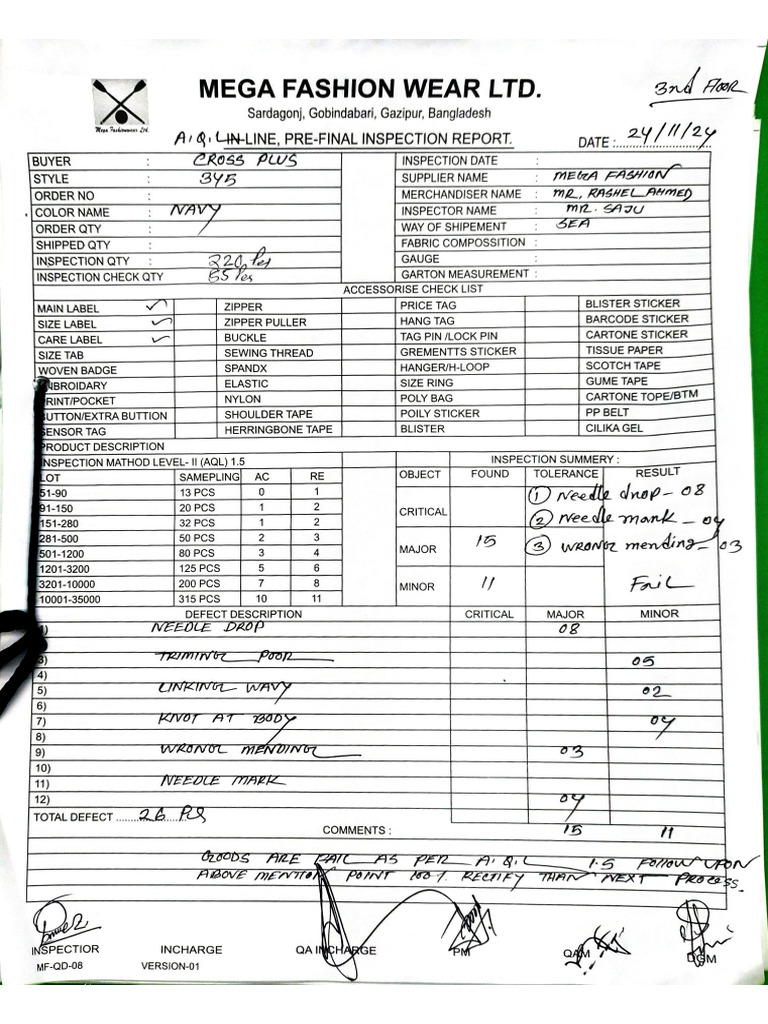 MEGA FASHION WEAR LTD.
3nd FLOOR
Mega Fashionwear Ltd.
Sardagonj, Gobindabari, Gazipur, Bangladesh
A.Q.L IN-LINE, PRE-FINAL INSPECTION REPORT.
DATE : 24/11/24
BUYER : CROSS PLUS INSPECTION DATE :
STYLE : 345 SUPPLIER NAME : MEGA FASHION
ORDER NO : MERCHANDISER NAME : MR, RASHEL AHMED
COLOR NAME : NAVY INSPECTOR NAME : MR. SAJU
ORDER QTY : WAY OF SHIPEMENT : SEA
SHIPPED QTY : FABRIC COMPOSSITION :
INSPECTION QTY : 220 Pcs GAUGE :
INSPECTION CHECK QTY 55 Pcs GARTON MEASUREMENT :
ACCESSORISE CHECK LIST
MAIN LABEL ✓ ZIPPER PRICE TAG BLISTER STICKER
SIZE LABEL ✓ ZIPPER PULLER HANG TAG BARCODE STICKER
CARE LABEL ✓ BUCKLE TAG PIN /LOCK PIN CARTONE STICKER
SIZE TAB SEWING THREAD GREMENTTS STICKER TISSUE PAPER
WOVEN BADGE SPANDX HANGER/H-LOOP SCOTCH TAPE
EMBROIDARY ELASTIC SIZE RING GUME TAPE
PRINT/POCKET NYLON POLY BAG CARTONE TOPE/BTM
BUTTON/EXTRA BUTTION SHOULDER TAPE POILY STICKER PP BELT
SENSOR TAG HERRINGBONE TAPE BLISTER CILIKA GEL
PRODUCT DESCRIPTION
INSPECTION MATHOD LEVEL- II (AQL) 1.5 INSPECTION SUMMERY :
LOT SAMEPLING AC RE OBJECT FOUND TOLERANCE RESULT
51-90 13 PCS 0 1
91-150 20 PCS 1 2
151-280 32 PCS 1 2
281-500 50 PCS 2 3
501-1200 80 PCS 3 4
1201-3200 125 PCS 5 6
3201-10000 200 PCS 7 8
10001-35000 315 PCS 10 11
CRITICAL
① Needle drop - 08
② Needle mark - 04
MAJOR 15 ③ WRONG mending - 03
MINOR 11 Fail
DEFECT DESCRIPTION CRITICAL MAJOR MINOR
1) NEEDLE DROP 08
3) TRIMING POOR 05
4)
5) LINKING WAVY 02
6)
7) KNOT AT BODY 04
8)
9) WRONG MENDING 03
10)
11) NEEDLE MARK
12) 04
TOTAL DEFECT .......... 26 PCS
COMMENTS : 15 11
GOODS ARE FAIL AS PER A.Q.L 1.5 FOLLOW UPON
ABOVE MENTION POINT 100% RECTIFY THAN NEXT PROCESS.
INSPECTIOR INCHARGE QA INCHARGE PM QAM DGM
MF-QD-08 VERSION-01